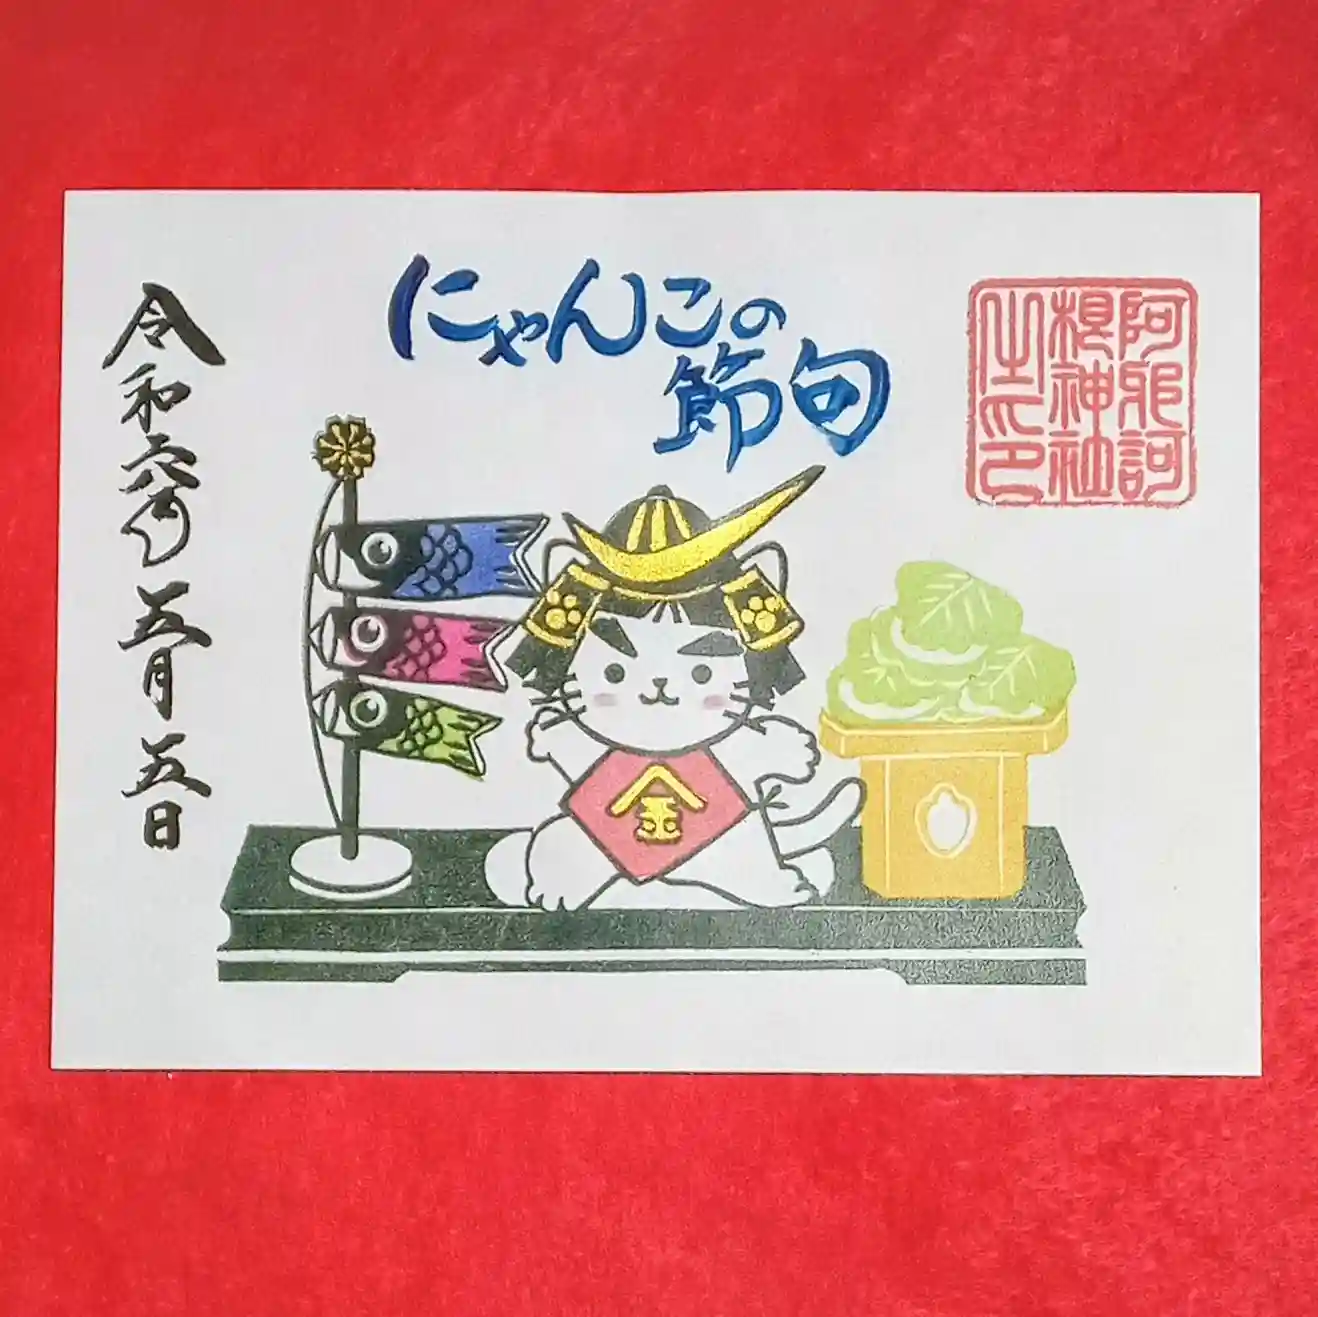 にゃんこの
節句
阿邪訶
根神社
之印
令和六年五月五日
金